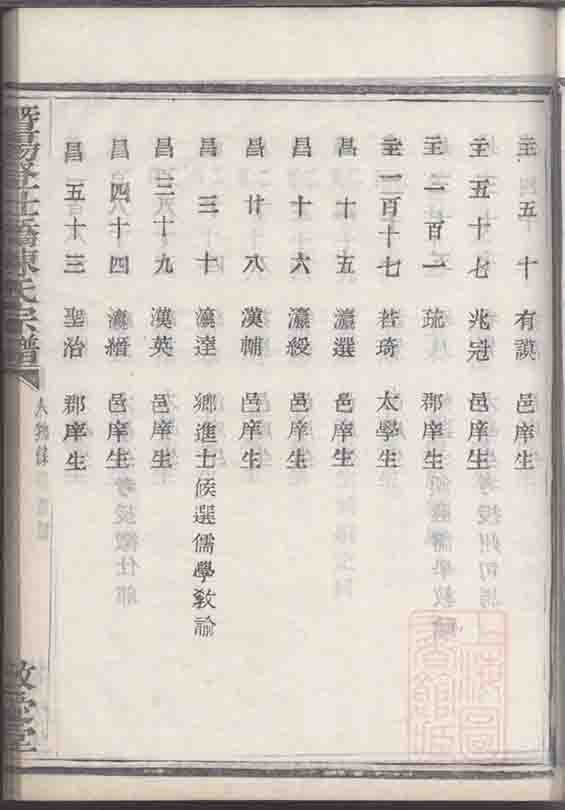 主五十 有謨 邑庠生
主五十七 兆冠 邑庠生
主一百一 珫 郡庠生
主一百十七 若琦 太學生
昌十五 瀛選 邑庠生
昌十六 瀛綬 邑庠生
昌廿八 漢輔 邑庠生
昌三十 瀛達 鄉進士候選儒學教諭
昌三十九 漢英 邑庠生
昌四十四 瀛縉 邑庠生
昌五十三 聖治 郡庠生
陳氏宗譜
人物錄
敬愛堂
上海圖書館藏